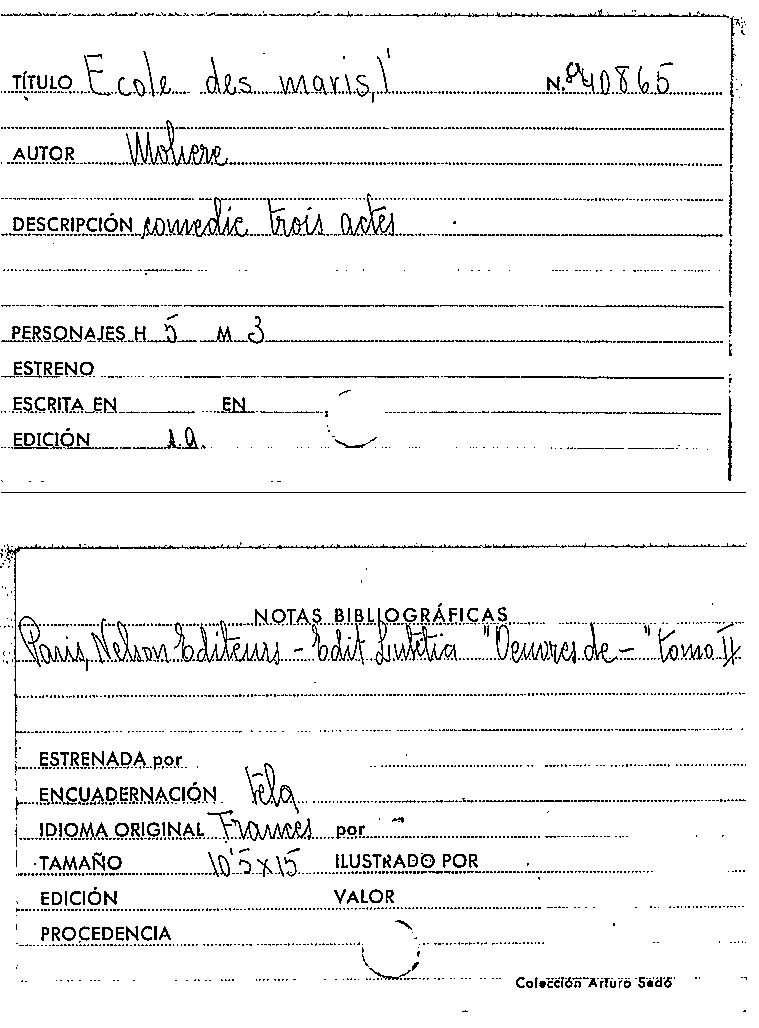 TÍTULO Ecole des maris, l' N.º 40865
AUTOR Moliere
DESCRIPCIÓN comedie trois actes
PERSONAJES H 5 M 3
ESTRENO
ESCRITA EN EN
EDICIÓN 1a.
NOTAS BIBLIOGRÁFICAS
Paris, Nelson Editeurs - Edit Lutetia "Oeuvres de - " tomo II
ESTRENADA por
ENCUADERNACIÓN tela
IDIOMA ORIGINAL Frances por "
TAMAÑO 10'5x15 ILUSTRADO POR
EDICIÓN VALOR
PROCEDENCIA
Colección Arturo Sedó